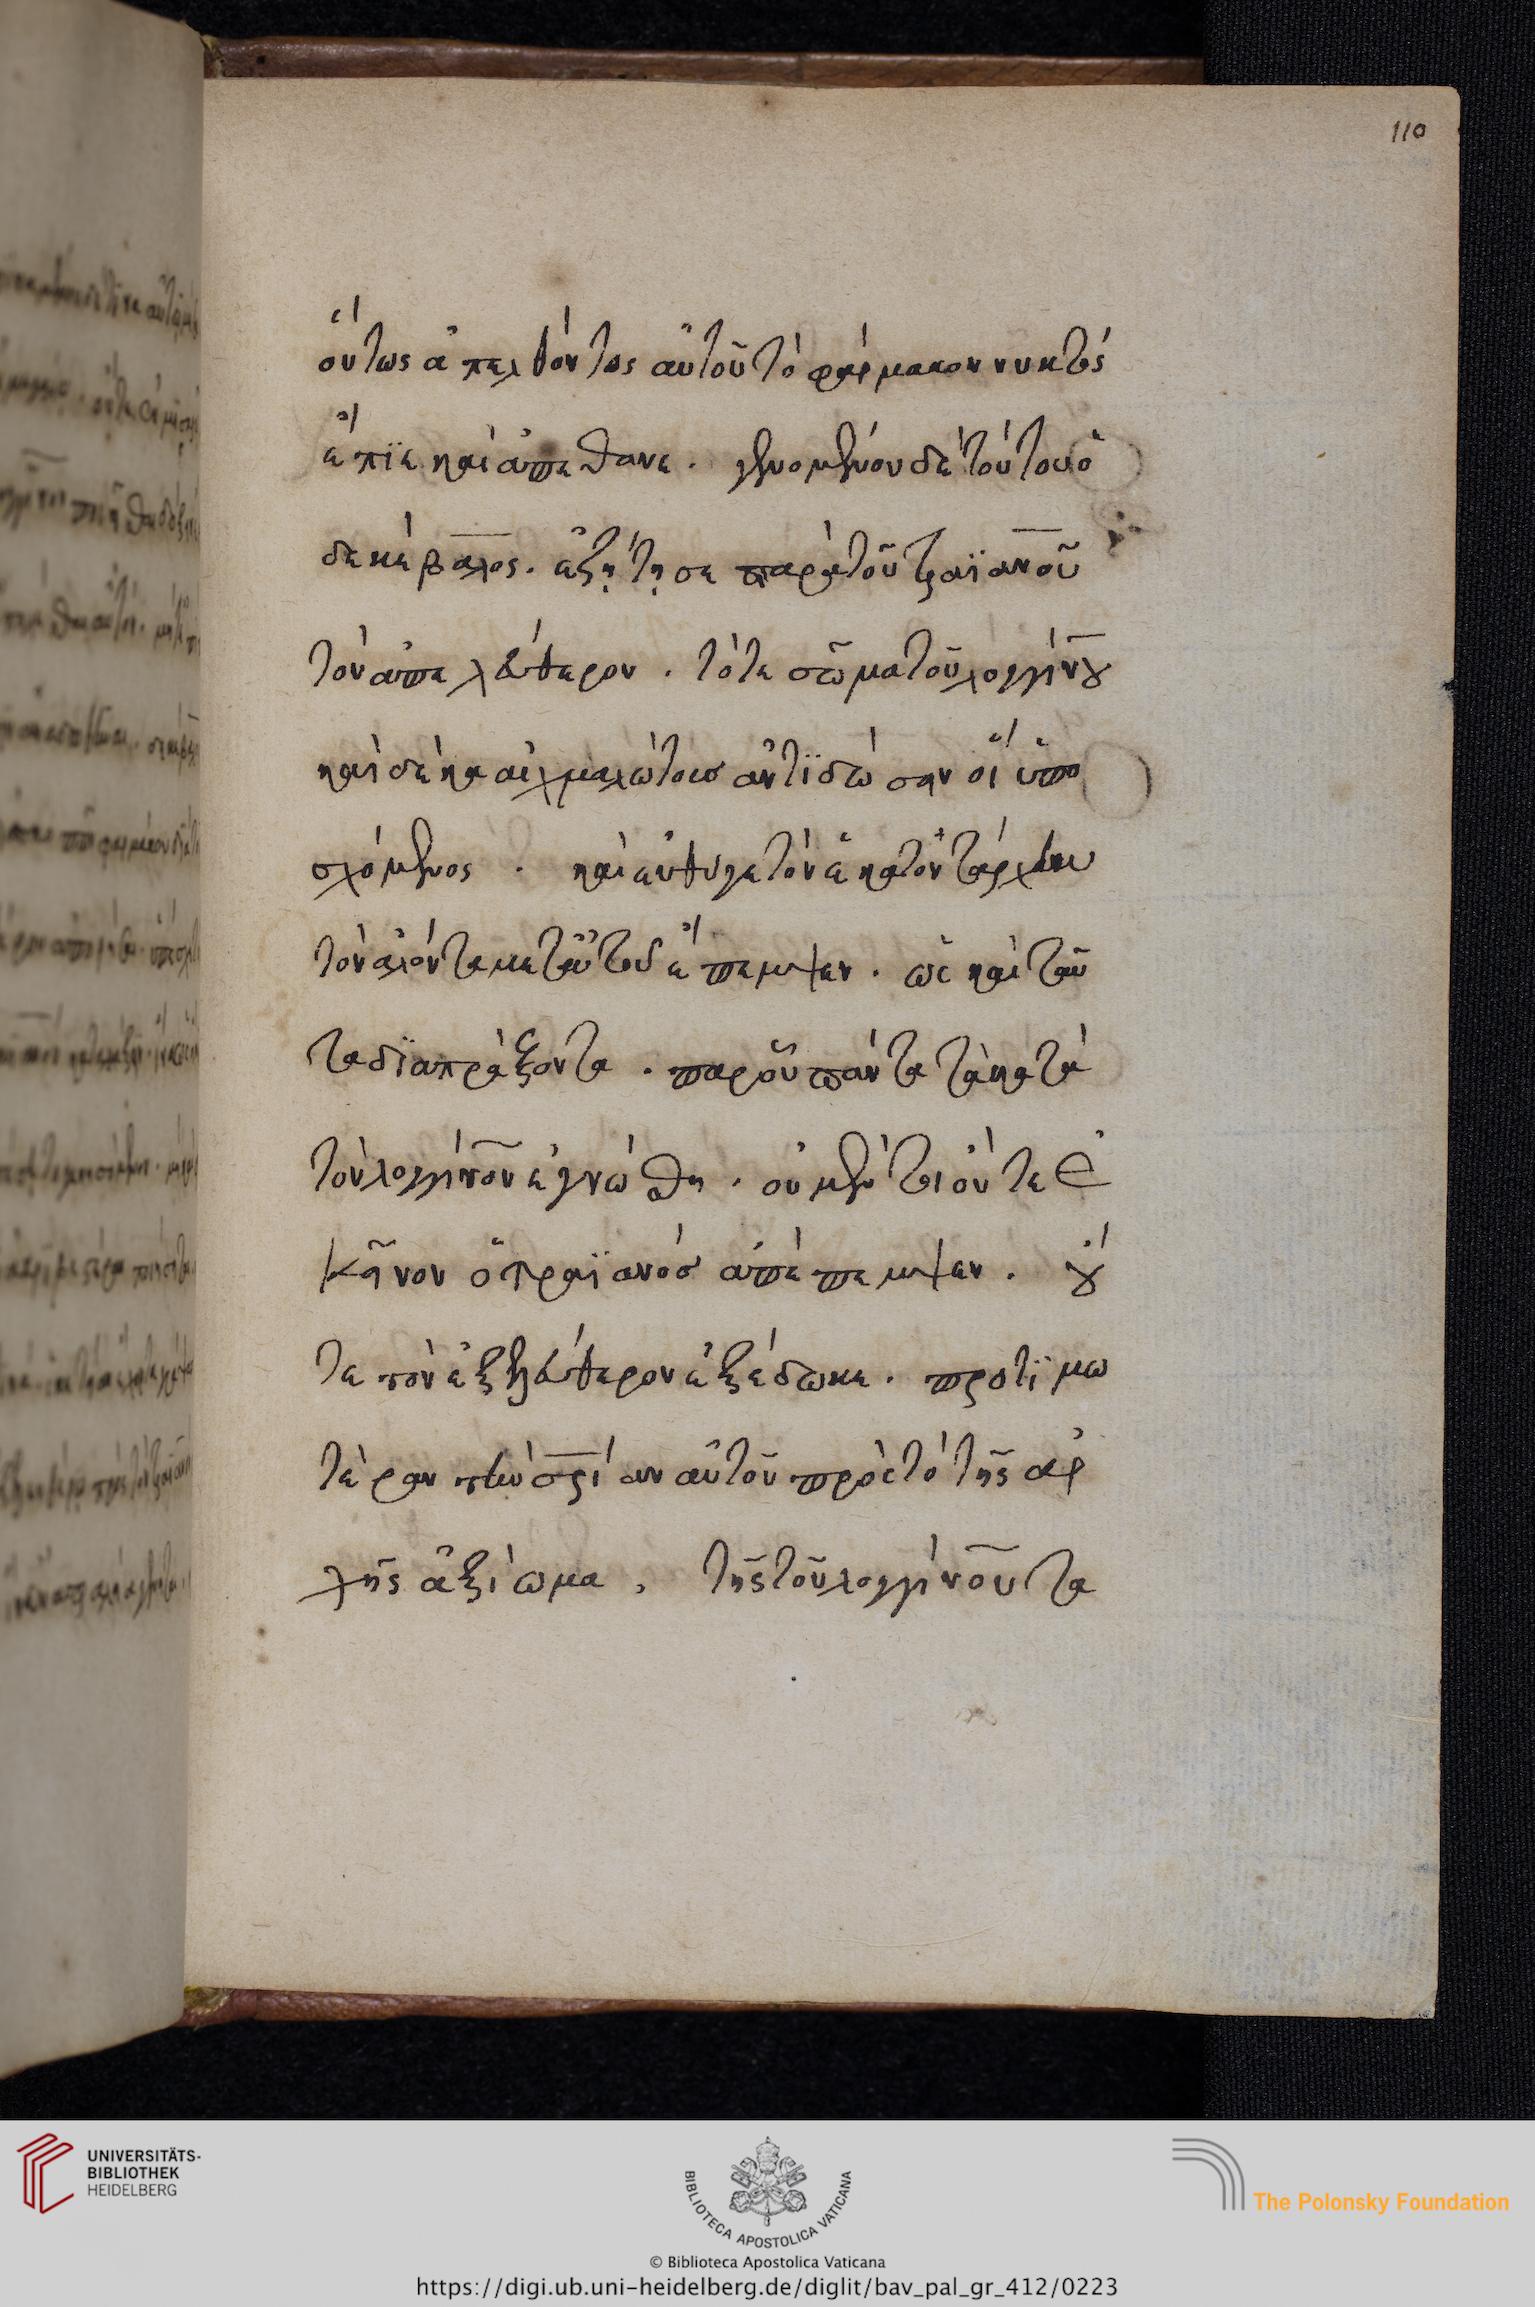 110
οὕτως ἀπελθόντος αὐτοῦ τὸ φάρμακον νυκτὸς
ἔπϊε καὶ ἀπέθανε. γενομένου δὲ τούτου ὁ
δεκέβαλος. ἐζήτησε παρὰ τοῦ τραϊανοῦ
τὸν ἀπελεύθερον. τό τε σῶμα τοῦ λογγίνου
καὶ δέκα αἰχμαλώτους ἀντϊδώσην οἵ ὑπο
σχόμενος. καὶ εὐθύς γε τὸν ἑκατόνταρχην
τὸν ἁλόντα μετ' αὐτοῦ ἔπεμψεν. ὡς καὶ ταῦ
τα δϊαπράξοντα. παρ' οὗ πάντα τὰ κατὰ
τὸν λογγίνον ἐγνώθη. οὐ μέντοι οὔτε ἐ
κεῖνον ὁ τραϊανὸς ἀπέπεμψεν. οὔ
τε τὸν ἐξελεύθερον ἐξέδωκε. προτϊμω
τέραν τὴν σρίαν αὐτοῦ πρὸς τὸ τῆς ἀρ
χῆς ἀξίωμα. τῆς τοῦ λογγίνου τα
UNIVERSITÄTS-
BIBLIOTHEK
HEIDELBERG
BIBLIOTECA APOSTOLICA VATICANA
The Polonsky Foundation
© Biblioteca Apostolica Vaticana
https://digi.ub.uni-heidelberg.de/diglit/bav_pal_gr_412/0223